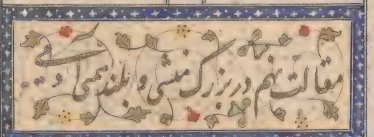 مقالت نهم در بزرگ منشی و بلند همتی آدمی